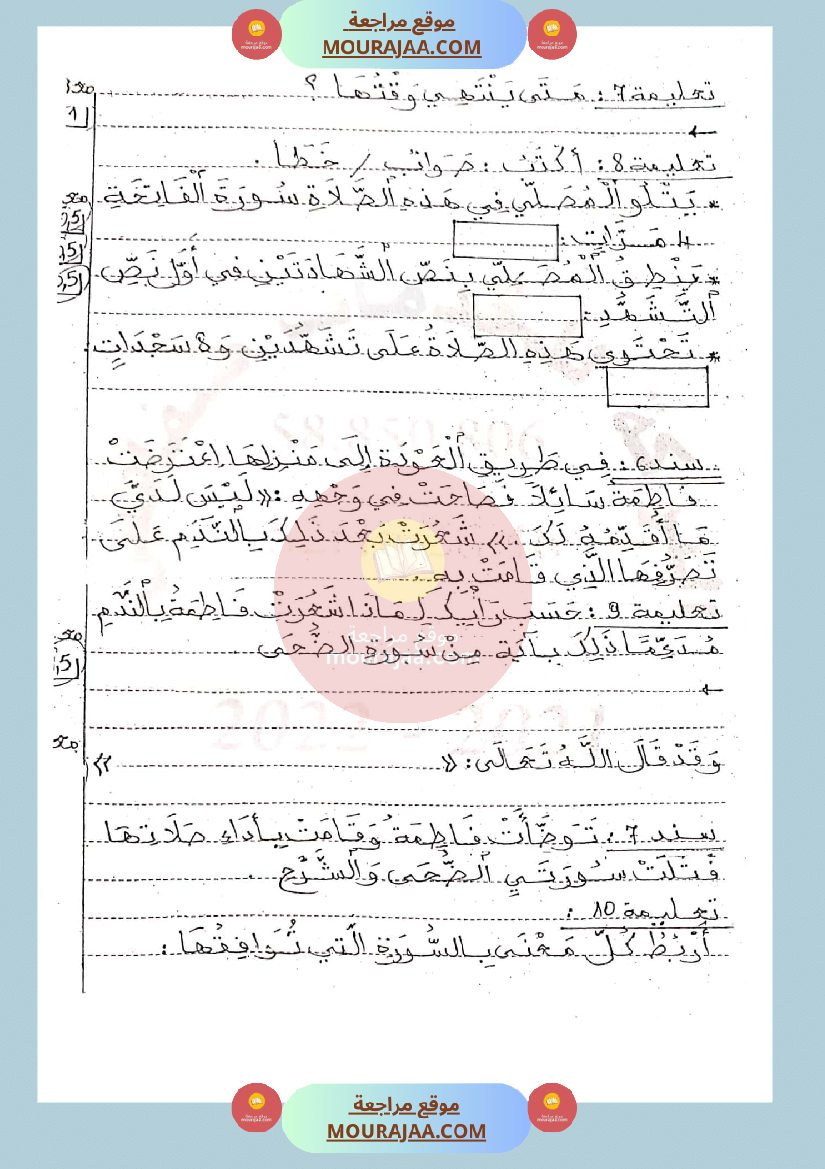 موقع مراجعة
MOURAJAA.COM
تعليمة 7 : مَتَى يَنْتَهِي وَقْتُهَا ؟
1
تعليمة 8 : أكْتُبُ : صَوَاب / خَطَأ .
* يَتْلُو الْمُصَلِّي فِي هَذِهِ الصَّلَاةِ سُورَةَ الْفَاتِحَةِ
4 مَرَّاتٍ :
* يَنْطِقُ الْمُصَلِّي بِنَصِّ الشَّهَادَتَيْنِ فِي أَوَّلِ نَصِّ
التَّشَهُّدِ :
* تَحْتَوِي هَذِهِ الصَّلَاةُ عَلَى تَشَهُّدَيْنِ وَ 8 سَجْدَاتٍ .
سند 6 : فِي طَرِيقِ الْعَوْدَةِ إِلَى مَنْزِلِهَا اِعْتَرَضَتْ
فَاطِمَة سَائِلًا فَصَاحَتْ فِي وَجْهِهِ : «لَيْسَ لَدَيَّ
مَا أُقَدِّمُهُ لَكَ .» شَعُرَتْ بَعْدَ ذَلِكَ بِالنَّدَمِ عَلَى
تَصَرُّفِهَا الَّذِي قَامَتْ بِهِ .
تعليمة 9 : حَسَبَ رَأْيِكَ لِمَاذَا شَعُرَتْ فَاطِمَةُ بِالنَّدَمِ
مُدَعِّمًا ذَلِكَ بِآيَة مِنْ سُورَةِ الضُّحَى .
موقع مراجعة
mourajaa.com
وَقَدْ قَالَ اللَّهُ تَعَالَى : « »
سند 7 : تَوَضَّأَتْ فَاطِمَةُ وَقَامَتْ بِأَدَاءِ صَلَاتِهَا
فَتَلَتْ سُورَتَيِ الضُّحَى وَالشَّرْحِ .
تعليمة 10 :
أَرْبُطُ كُلَّ مَعْنَى بِالسُّورَةِ الَّتِي تُوَافِقُهَا :
موقع مراجعة
MOURAJAA.COM